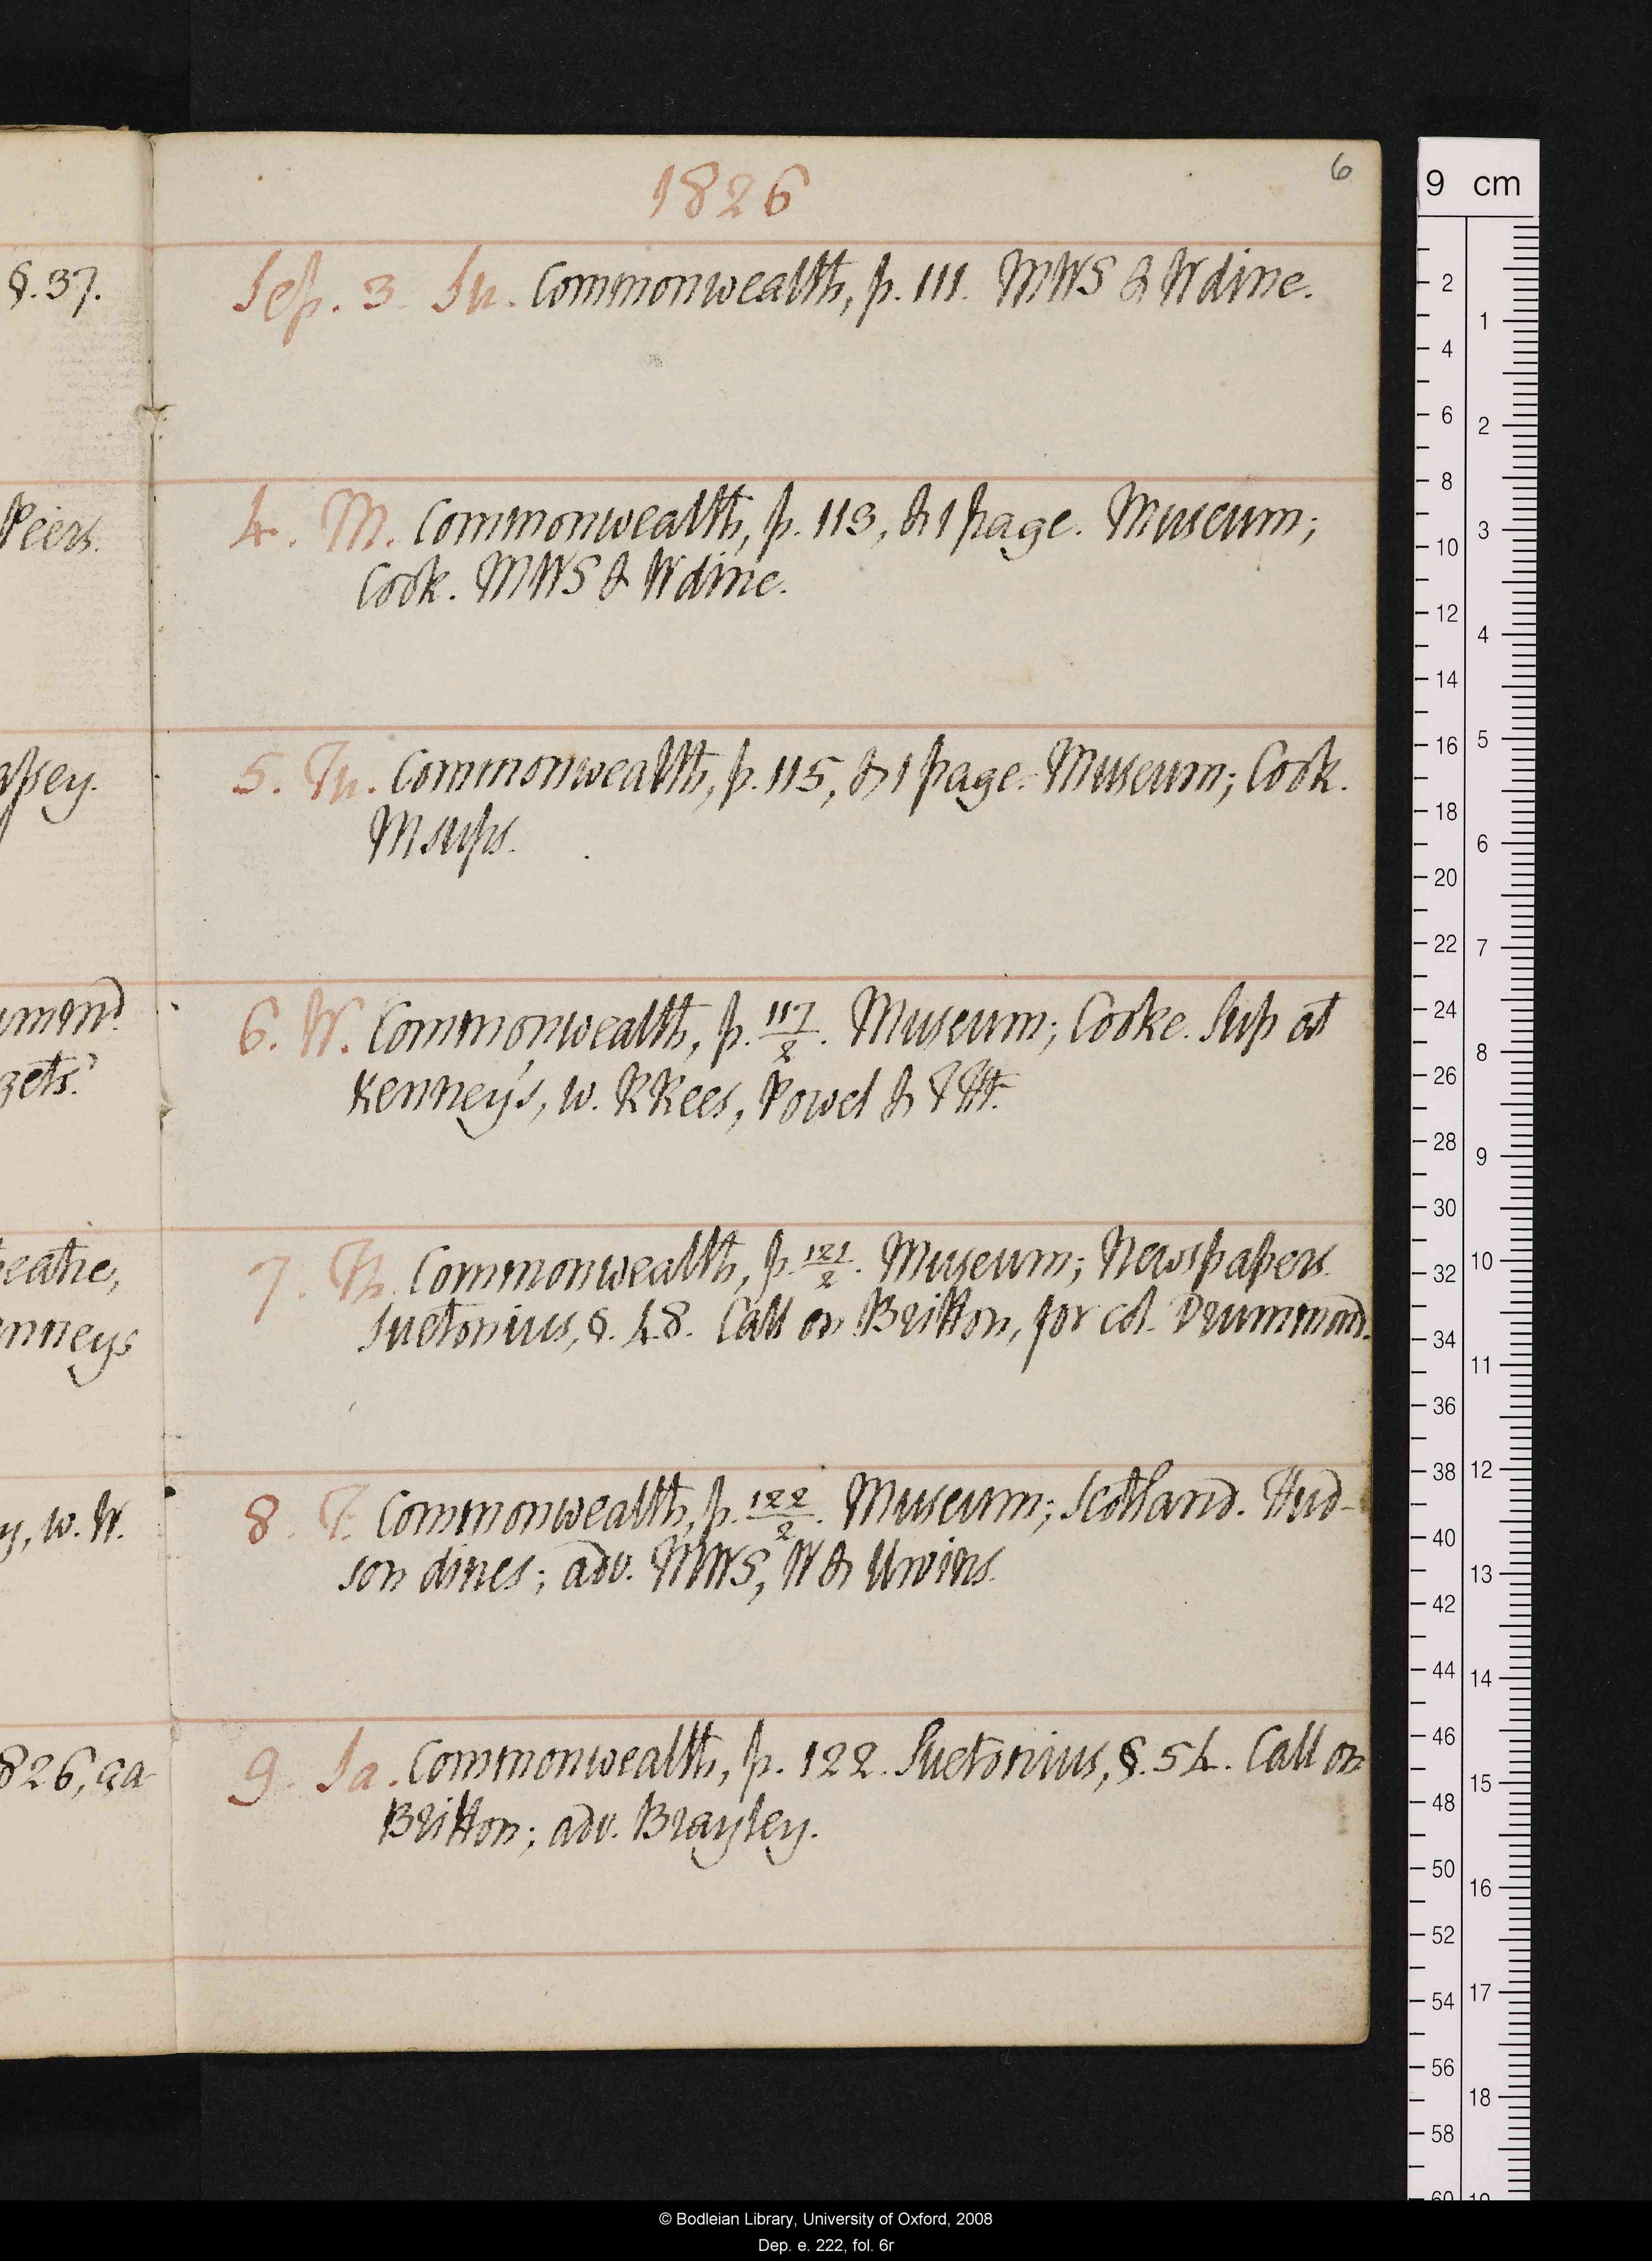 1826
6
§. 37.
Sep. 3. Su. Commonwealth, p. 111. MWS & W dine.
Peers.
4. M. Commonwealth, p. 113, & 1 page. Museum;
Cook. MWS & W dine.
apsey.
5. Tu. Commonwealth, p. 115, & 1 page. Museum; Cook.
M sups.
6. W. Commonwealth, p. 117/2. Museum; Cooke. Sup at
Kenney's, w. R Rees, Powel &
gets.
7. Th. Commonwealth, p. 121/2. Museum; Newspapers.
Suetonius, §. 48. Call on Britton, for col. Drummond.
nneys
8. F. Commonwealth, p. 122/2. Museum; Scotland. Hud-
son dines; adv. MWS, W & Unwins.
y, w. W.
9. Sa. Commonwealth, p. 122. Suetonius, §. 54. Call on
Britton; adv. Brayley.
826, ga
9 cm
2
4
6
8
10
12
14
16
18
20
22
24
26
28
30
32
34
36
38
40
42
44
46
48
50
52
54
56
58
60
1
2
3
4
5
6
7
8
9
10
11
12
13
14
15
16
17
18
19
© Bodleian Library, University of Oxford, 2008
Dep. e. 222, fol. 6r